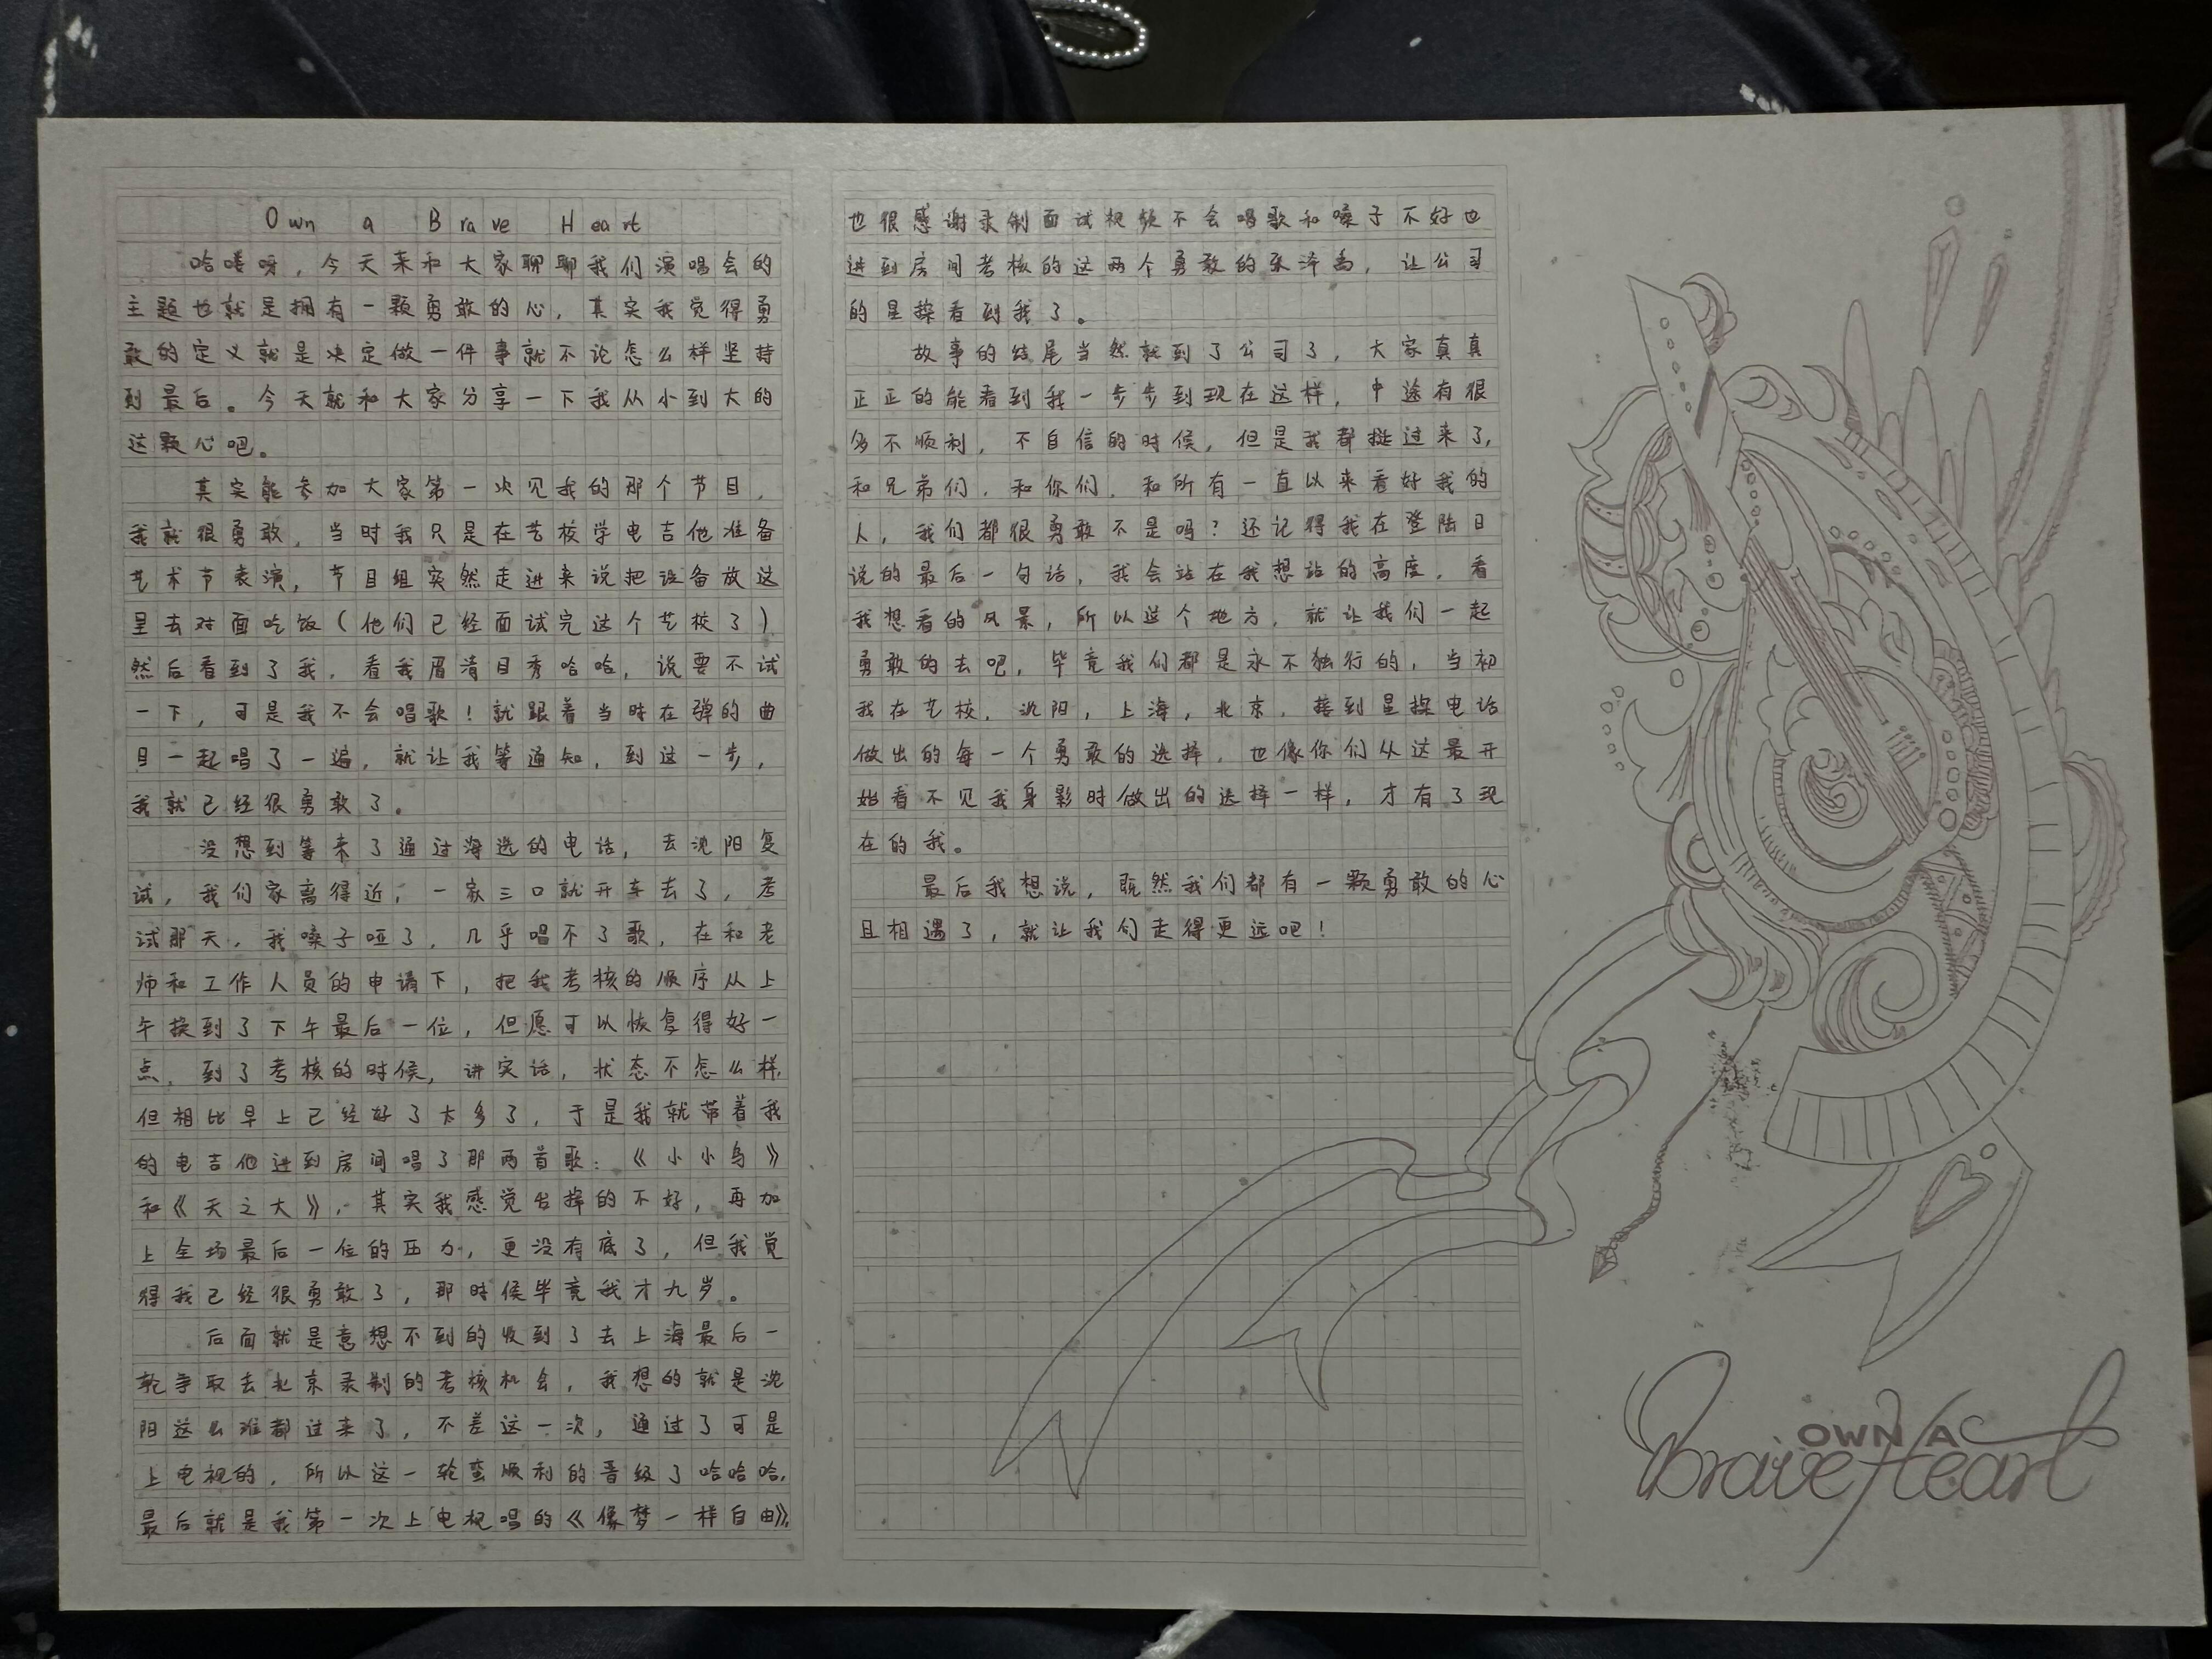 Own a Brave Heart
哈喽呀，今天来和大家聊聊我们演唱会的
主题也就是拥有一颗勇敢的心，其实我觉得勇
敢的定义就是决定做一件事就不论怎么样坚持
到最后。今天就和大家分享一下我从小到大的
这颗心吧。
其实能参加大家第一次见我的那个节目，
我就很勇敢，当时我只是在艺校学电吉他准备
艺术节表演，节目组突然走进来说把设备放这
里去对面吃饭（他们已经面试完这个艺校了）
然后看到了我，看我眉清目秀哈哈，说要不试
一下，可是我不会唱歌！就跟着当时在弹的曲
目一起唱了一遍，就让我等通知，到这一步，
我就已经很勇敢了。
没想到等来了通过海选的电话，去沈阳复
试，我们家离得近，一家三口就开车去了，考
试那天，我嗓子哑了，几乎唱不了歌，在和老
师和工作人员的申请下，把我考核的顺序从上
午换到了下午最后一位，但愿可以恢复得好一
点，到了考核的时候，讲实话，状态不怎么样，
但相比早上已经好了太多了，于是我就带着我
的电吉他进到房间唱了那两首歌：《小小鸟》
和《天之大》，其实我感觉发挥的不好，再加
上全场最后一位的压力，更没有底了，但我觉
得我已经很勇敢了，那时候毕竟我才九岁。
后面就是意想不到的收到了去上海最后一
轮争取去北京录制的考核机会，我想的就是沈
阳这么难都过来了，不差这一次，通过了可是
上电视的，所以这一轮蛮顺利的晋级了哈哈哈，
最后就是我第一次上电视唱的《像梦一样自由》，
也很感谢录制面试视频不会唱歌和嗓子不好也
进到房间考核的这两个勇敢的张泽禹，让公司
的星探看到我了。
故事的结尾当然就到了公司了，大家真真
正正的能看到我一步步到现在这样，中途有很
多不顺利，不自信的时候，但是我都挺过来了，
和兄弟们，和你们，和所有一直以来看好我的
人，我们都很勇敢不是吗？还记得我在登陆日
说的最后一句话，我会站在我想站的高度，看
我想看的风景，所以这个地方，就让我们一起
勇敢的去吧，毕竟我们都是永不独行的，当初
我在艺校，沈阳，上海，北京，接到星探电话
做出的每一个勇敢的选择，也像你们从这最开
始看不见我身影时做出的选择一样，才有了现
在的我。
最后我想说，既然我们都有一颗勇敢的心
且相遇了，就让我们走得更远吧！
OWN A
Brave Heart